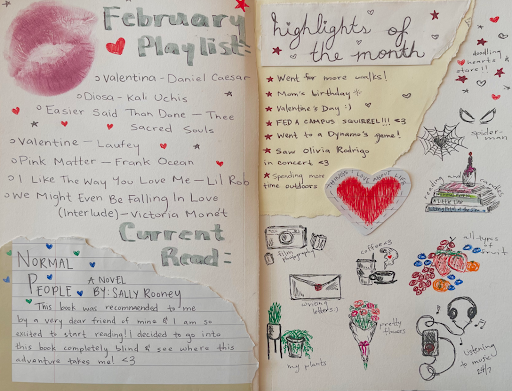 February
Playlist:
Valentina - Daniel Caesar
Diosa - Kali Uchis
Easier Said Than Done - Thee
Sacred Souls
Valentine - Laufey
Pink Matter - Frank Ocean
I Like The Way You Love Me - Lil Rob
We Might Even Be Falling In Love
(Interlude) - Victoria Monét
Current
Read:
NORMAL
PEOPLE
A NOVEL
BY: SALLY ROONEY
This book was recommended to me
by a very dear friend of mine & I am so
excited to start reading! I decided to go into
this book completely blind & see where this
adventure takes me! <3
highlights of
the month
Went for more walks!
Mom's birthday
Valentine's Day :)
FED A CAMPUS SQUIRREL!!! <3
Went to a Dynamo's game!
Saw Olivia Rodrigo
in concert <3
spending more
time outdoors
THINGS I LOVE ABOUT LIFE
doodling
hearts &
stars!!
spider-
man
reading
film
photography
coffeeee
all types
of
fruit
writing
letters :)
my plants
pretty
flowers
listening
to music
24/7